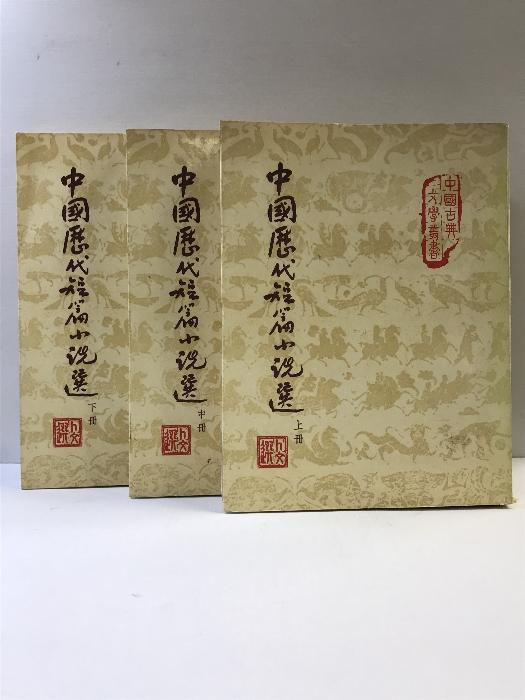 中國古典
文學叢書
中國歷代短篇小说選
上冊
中國歷代短篇小说選
中冊
中國歷代短篇小说選
下冊